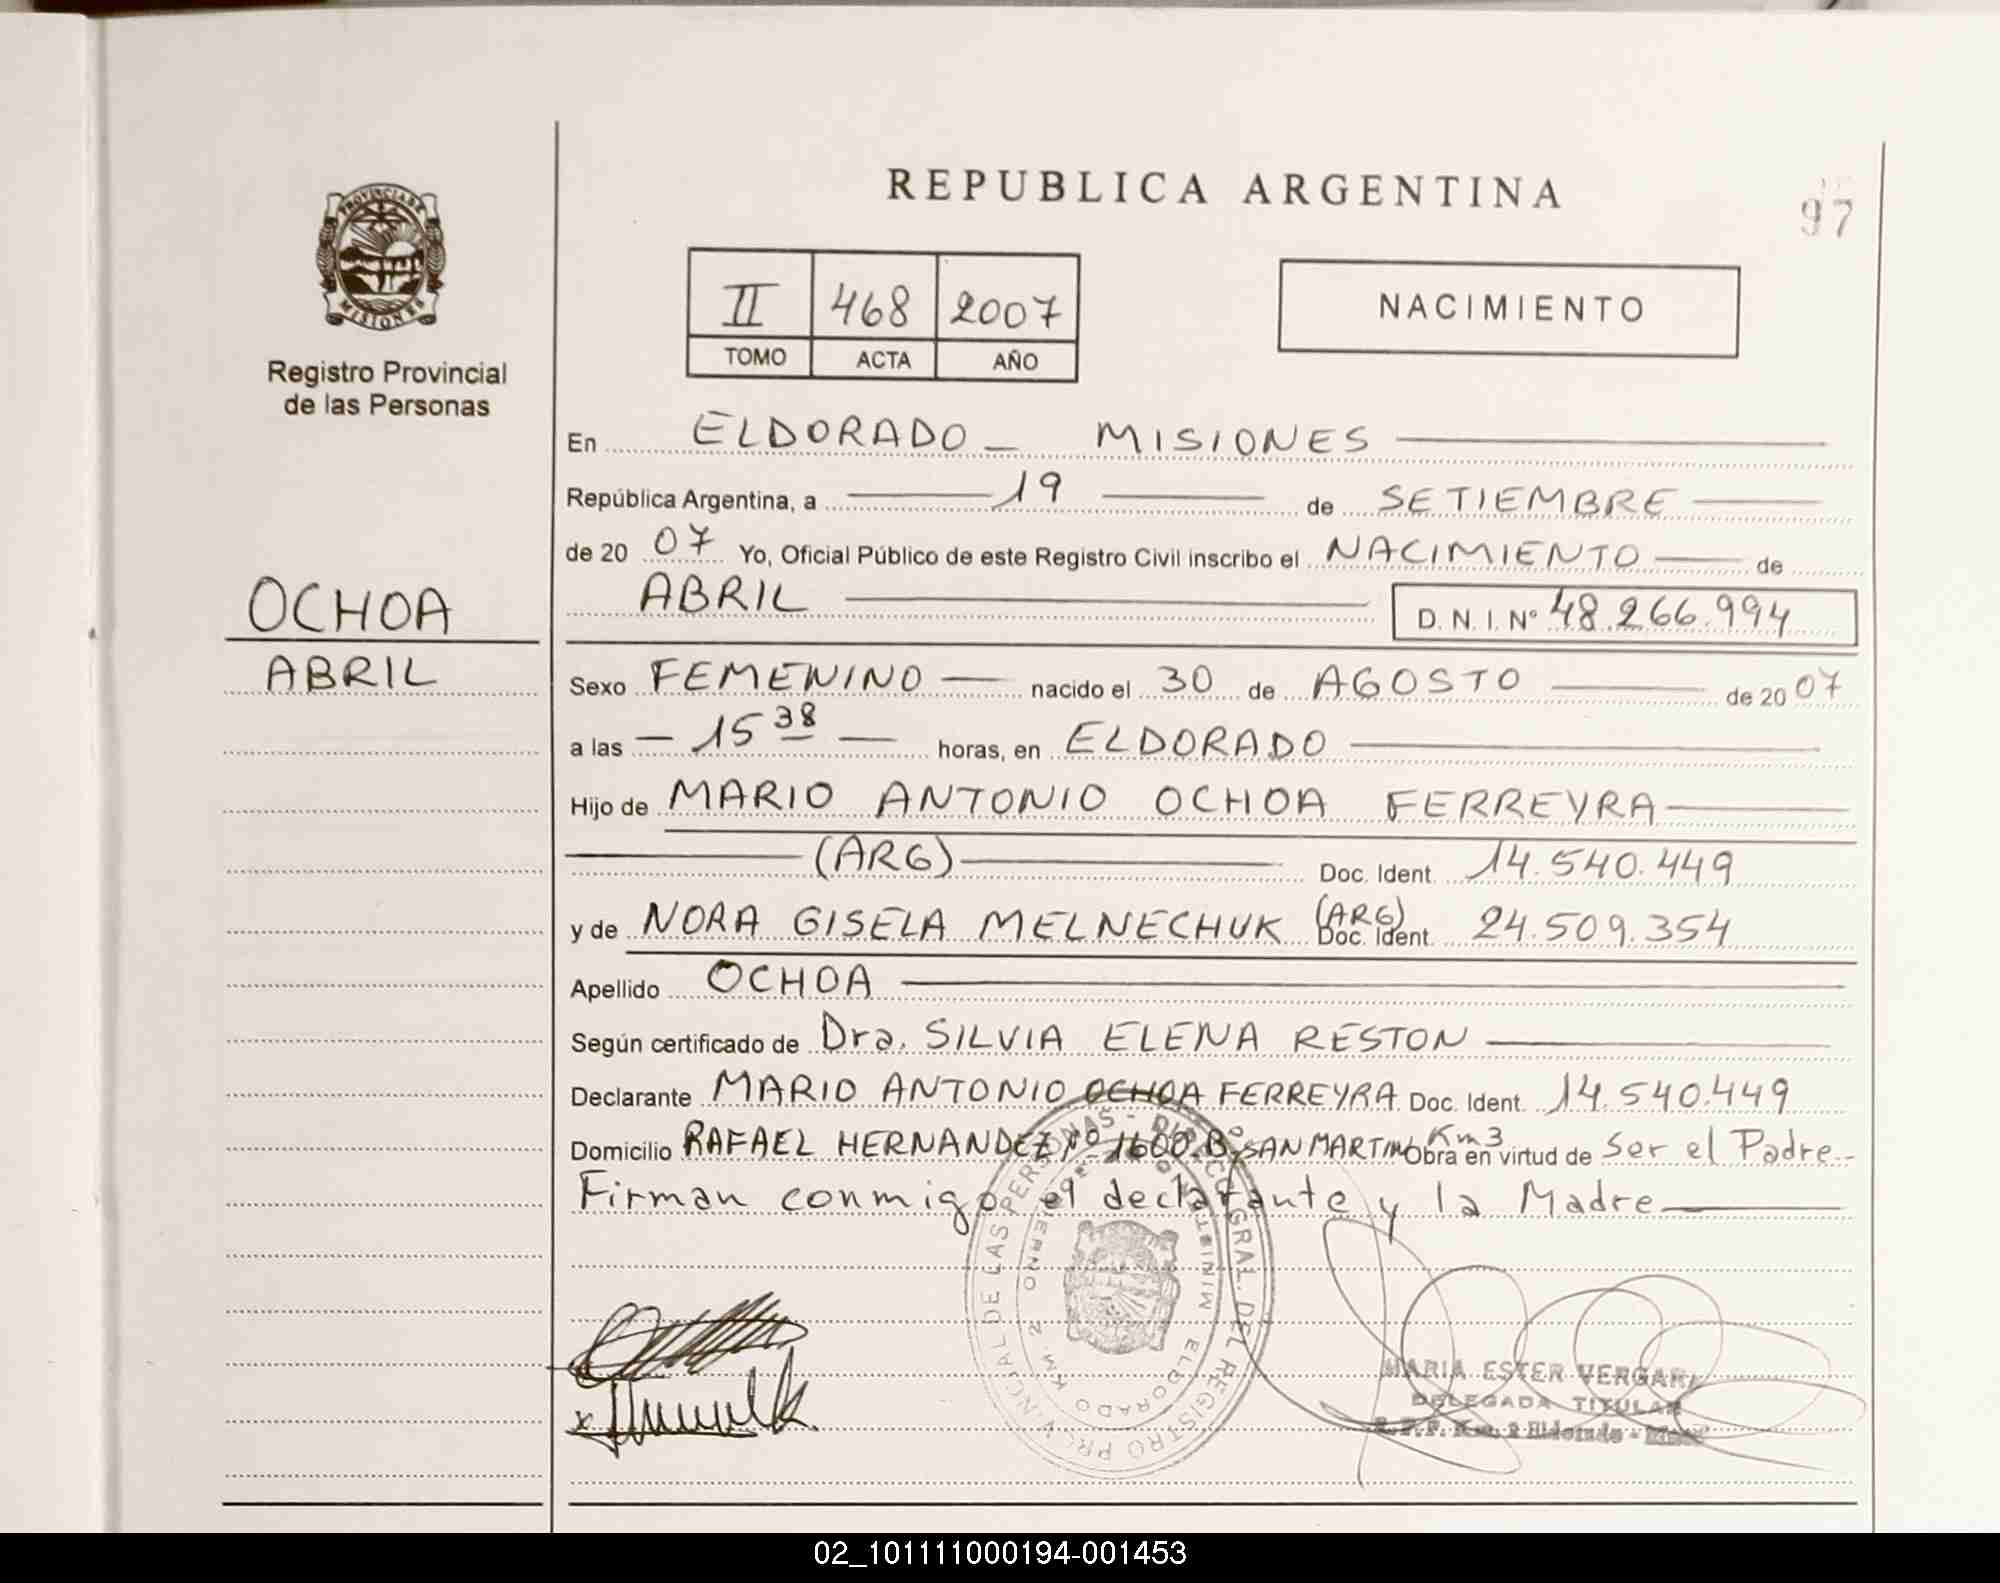 REPUBLICA ARGENTINA
97
PROVINCIA DE
MISIONES
Registro Provincial
de las Personas
II 468 2007
TOMO ACTA AÑO
NACIMIENTO
En ELDORADO - MISIONES
República Argentina, a 19 de SETIEMBRE
de 20 07 Yo, Oficial Público de este Registro Civil inscribo el NACIMIENTO de
ABRIL D. N. I. Nº 48.266.994
OCHOA
ABRIL
Sexo FEMENINO nacido el 30 de AGOSTO de 20 07
a las 15 38 horas, en ELDORADO
Hijo de MARIO ANTONIO OCHOA FERREYRA
(ARG) Doc. Ident. 14.540.449
y de NORA GISELA MELNECHUK (ARG) Doc. Ident. 24.509.354
Apellido OCHOA
Según certificado de Dra. SILVIA ELENA RESTON
Declarante MARIO ANTONIO OCHOA FERREYRA Doc. Ident. 14.540.449
Domicilio RAFAEL HERNANDEZ Nº 1600 Bº SAN MARTIN Km 3 Obra en virtud de Ser el Padre.-
Firman conmigo el declarante y la Madre
DIRECC. GRAL. DEL REGISTRO PROVINCIAL DE LAS PERSONAS -
ELDORADO KM. 2
MARIA ESTER VERGARA
DELEGADA TITULAR
R.P.P. Km. 2 Eldorado - Mnes
02_101111000194-001453